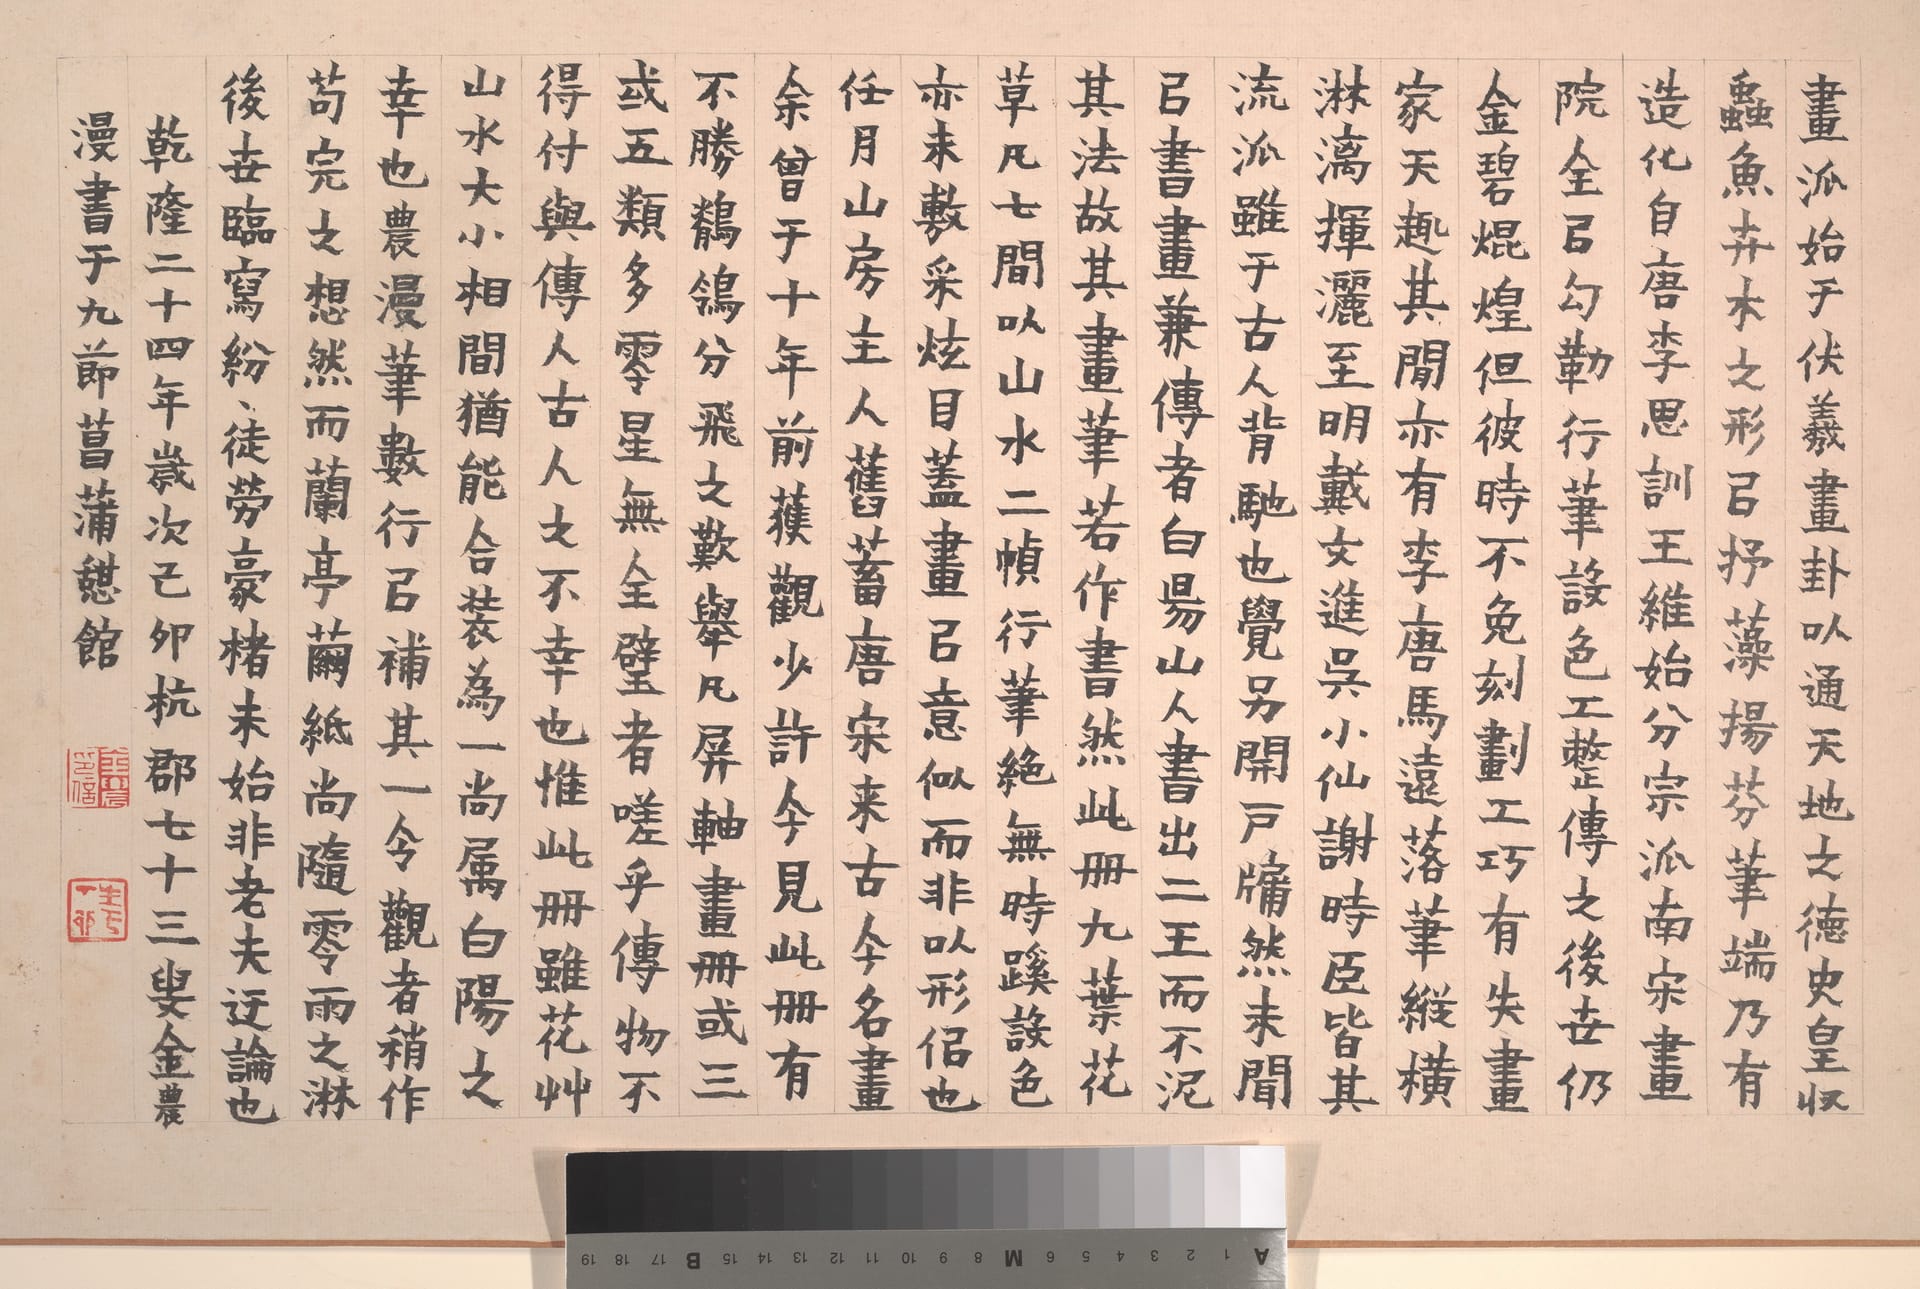 畫派始于伏羲畫卦以通天地之德史皇収
蟲魚卉木之形㠯抒藻揚芬筆端乃有
造化自唐李思訓王維始分宗派南宋畫
院全㠯勾勒行筆設色工整傳之後世仍
金碧焜煌但彼時不免刻劃工巧有失畫
家天趣其間亦有李唐馬遠落筆縱橫
淋漓揮灑至明戴文進吳小仙謝時臣皆其
流派雖于古人背馳也覺另開戸牖然未聞
㠯書畫兼傳者白昜山人書出二王而不泥
其法故其畫筆若作書然此冊九葉花
草凡七間以山水二幀行筆絕無時蹊設色
亦未敷采炫目蓋畫㠯意似而非以形侶也
任月山房主人舊蓄唐宋来古今名畫
余曾于十年前獲觀少許今見此冊有
不勝鶺鴒分飛之歎舉凡屏軸畫冊或三
或五類多零星無全璧者嗟乎傳物不
得付與傳人古人之不幸也惟此冊雖花艸
山水大小相間猶能合裝為一尚属白陽之
幸也農漫筆數行㠯補其一令觀者稍作
苟完之想然而蘭亭繭紙尚隨零雨之淋
後世臨寫紛〻徒勞豪楮未始非老夫迂論也
乾隆二十四年歲次己夘杭郡七十三叟金農
漫書于九節菖蒲憇館
金農印信
生於丁卯